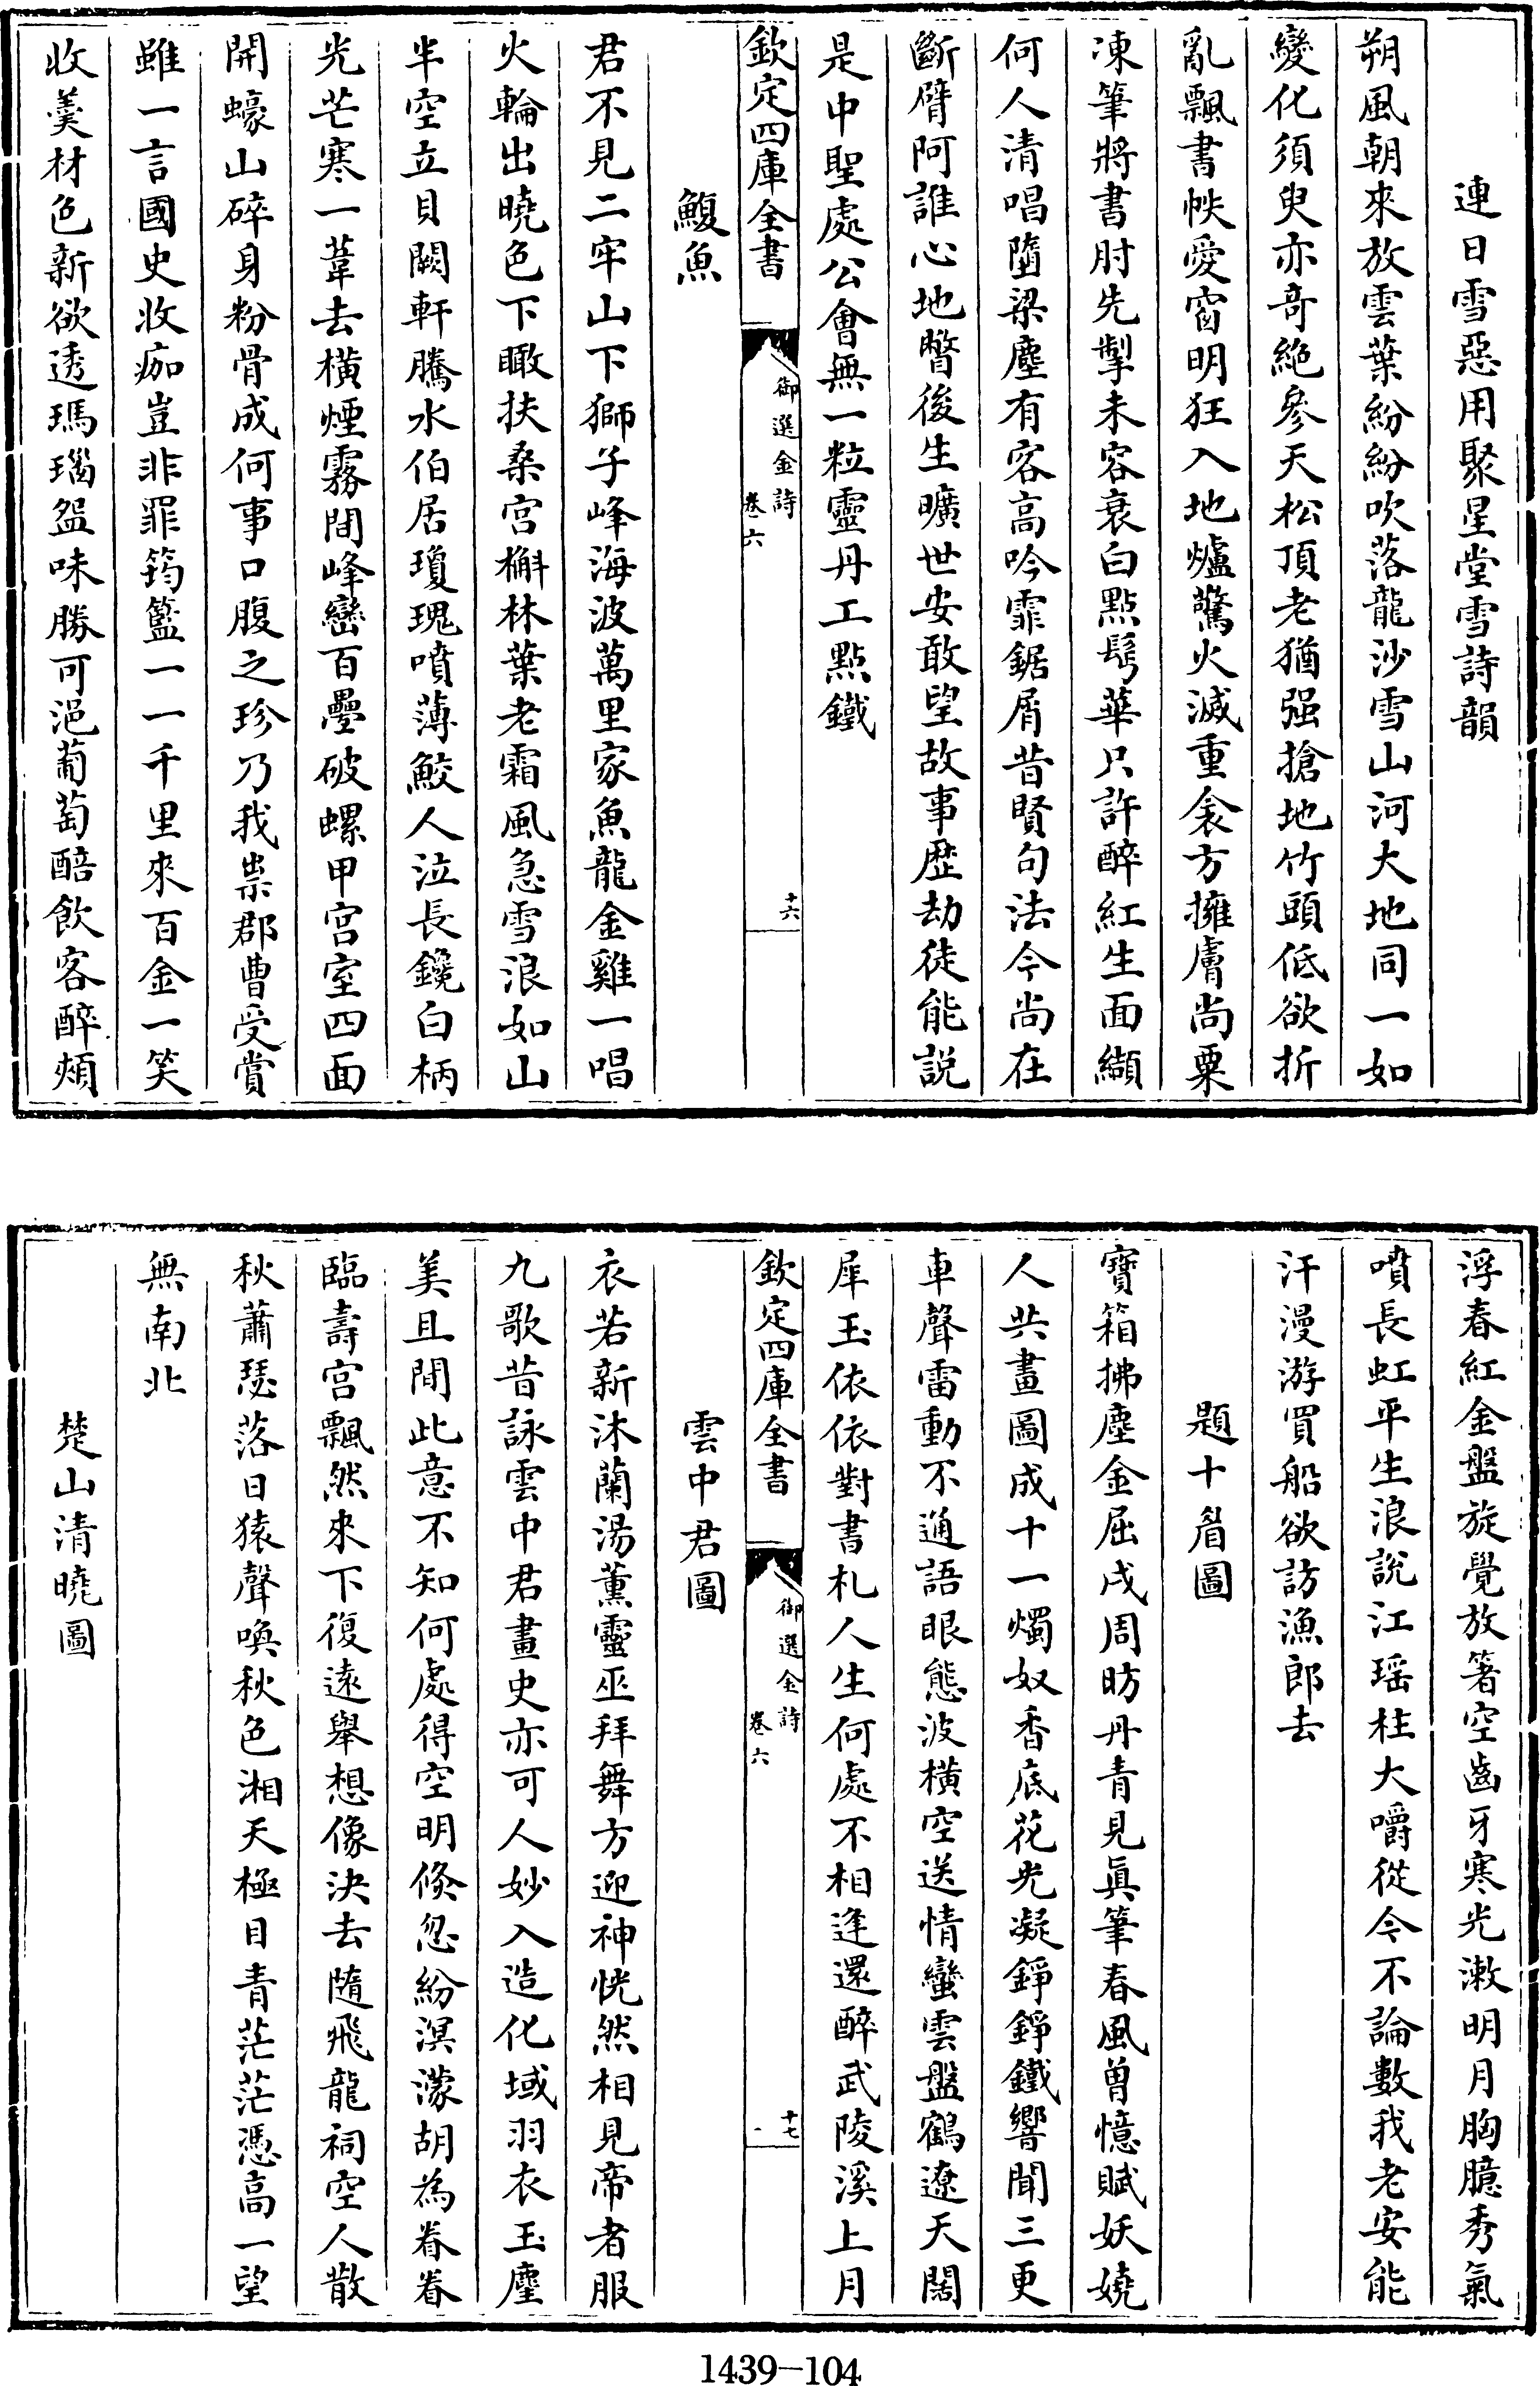 連日雪惡用聚星堂雪詩韻
朔風朝來放雲葉紛紛吹落龍沙雪山河大地同一如
變化須臾亦奇絶參天松頂老猶强搶地竹頭低欲折
亂飄書帙愛窗明狂入地爐驚火滅重衾方擁膚尚粟
凍筆將書肘先掣未容衰白點鬂華只許醉紅生面纈
何人清唱墮梁塵有客高吟霏鋸屑昔賢句法今尚在
斷臂阿誰心地瞥後生曠世安敢望故事歴劫徒能説
是中聖處公會無一粒靈丹工點鐵
欽定四庫全書
御選金詩
卷六
十六
鰒魚
君不見二牢山下獅子峰海波萬里家魚龍金雞一唱
火輪出曉色下瞰扶桑宫槲林葉老霜風急雪浪如山
半空立貝闕軒騰水伯居瓊瑰噴薄鮫人泣長鑱白柄
光芒寒一葦去横煙霧間峰巒百疊破螺甲宫室四面
開蠔山碎身粉骨成何事口腹之珍乃我祟郡曹受賞
雖一言國史收痂豈非罪筠籃一一千里來百金一笑
收羹材色新欲透瑪瑙盌味勝可浥葡萄醅飲客醉頰
浮春紅金盤旋覺放箸空齒牙寒光漱明月胸臆秀氣
噴長虹平生浪説江瑶柱大嚼從今不論數我老安能
汗漫游買船欲訪漁郎去
題十眉圖
寶箱拂塵金屈戍周昉丹青見眞筆春風曾憶賦妖嬈
人共畫圖成十一燭奴香底花光凝錚錚鐵響聞三更
車聲雷動不通語眼態波横空送情蠻雲盤鶴遼天闊
犀玉依依對書札人生何處不相逢還醉武陵溪上月
欽定四庫全書
御選金詩
卷六
十七
雲中君圖
衣若新沐蘭湯薰靈巫拜舞方迎神恍然相見帝者服
九歌昔詠雲中君畫史亦可人妙入造化域羽衣玉麈
美且閒此意不知何處得空明倏忽紛溟濛胡為眷眷
臨壽宫飄然來下復遠舉想像決去隨飛龍祠空人散
秋蕭瑟落日猿聲喚秋色湘天極目青茫茫憑高一望
無南北
楚山清曉圖
1439-104